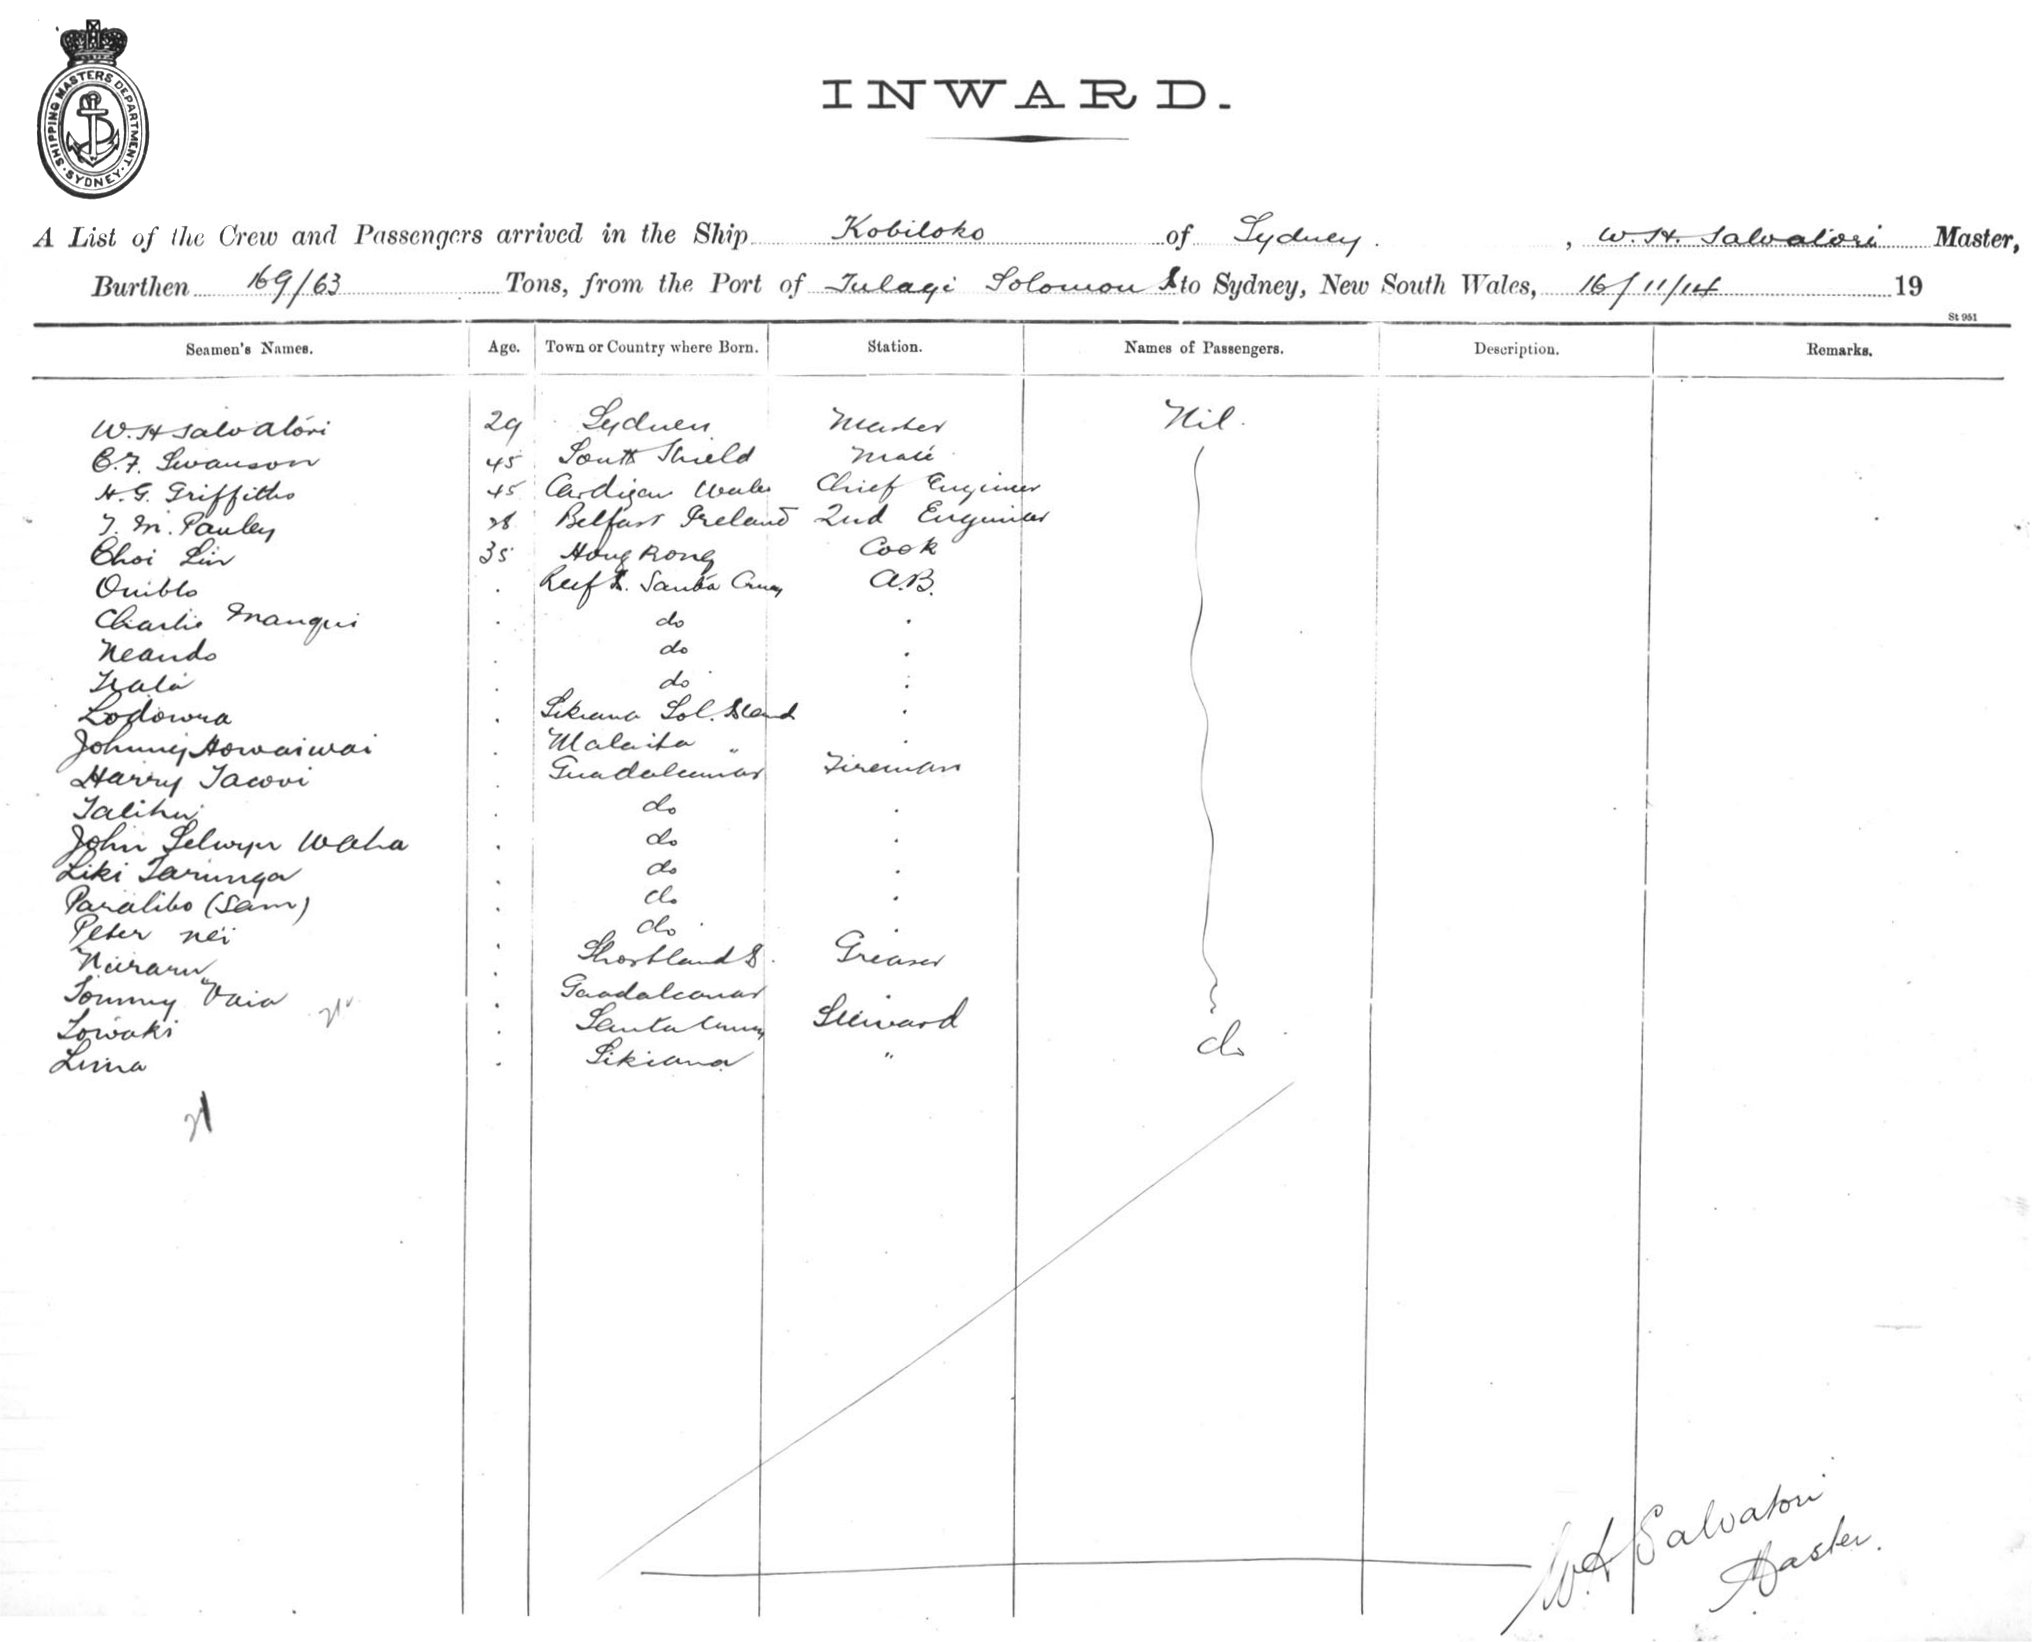 SHIPPING MASTERS DEPARTMENT. SYDNEY.
INWARD.
A List of the Crew and Passengers arrived in the Ship Kobiloko of Sydney. , W. H. Salvatori Master,
Burthen 169/63 Tons, from the Port of Tulagi Solomon Is to Sydney, New South Wales, 16/11/14 19
St 951
Seamen's Names. Age. Town or Country where Born. Station. Names of Passengers. Description. Remarks.
W. H Salvatori 29 Sydney Master Nil.
C. F. Swanson 45 South Shield Mate
H. G. Griffiths 45 Cardigan Wales Chief Engineer
T. M. Pauley 28 Belfast Ireland 2nd Engineer
Choi Lin 35 Hong Kong Cook
Ouiblo . Reef Is. Santa Cruz A.B.
Charlie Mangui . do .
Neando . do .
. do .
Lodowra . Sikiana Sol. Island .
Johnny Howaiwai . Malaita " .
Harry Tacovi . Guadalcanar Fireman
Talihu . do .
John Selwyn Waha . do .
Liki Tarunga . do .
Paralibo (Sam) . do .
Peter Nei . do .
. Shortland Is. Greaser
Tommy Vaia . Guadalcanar .
Lowaki . Santa Cruz Steward
Lima . Sikiana " do
21
W H Salvatori
Master.